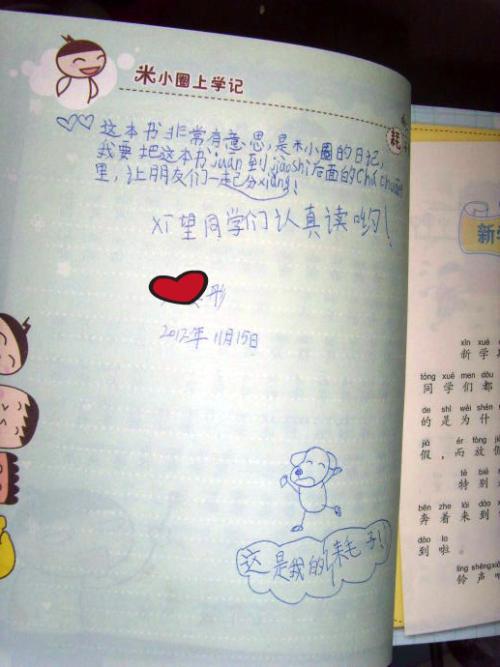 米小圈上学记
这本书非常有意思，是米小圈的日记，
我要把这本书juān到jiàoshì后面的
里，让朋友们一起分xiǎng！
xī望同学们认真读哟！
彤
2012年11月15日
这是我的耗子！
新学
xīn xué
新学
tóng xué men dōu
同学们都
de shì wèi shén
的是为什
jià ér fàng
假，而放假
tè bié
特别
bēn zhe lái dào
奔着来到
dào la
到啦
líng shēng
铃声